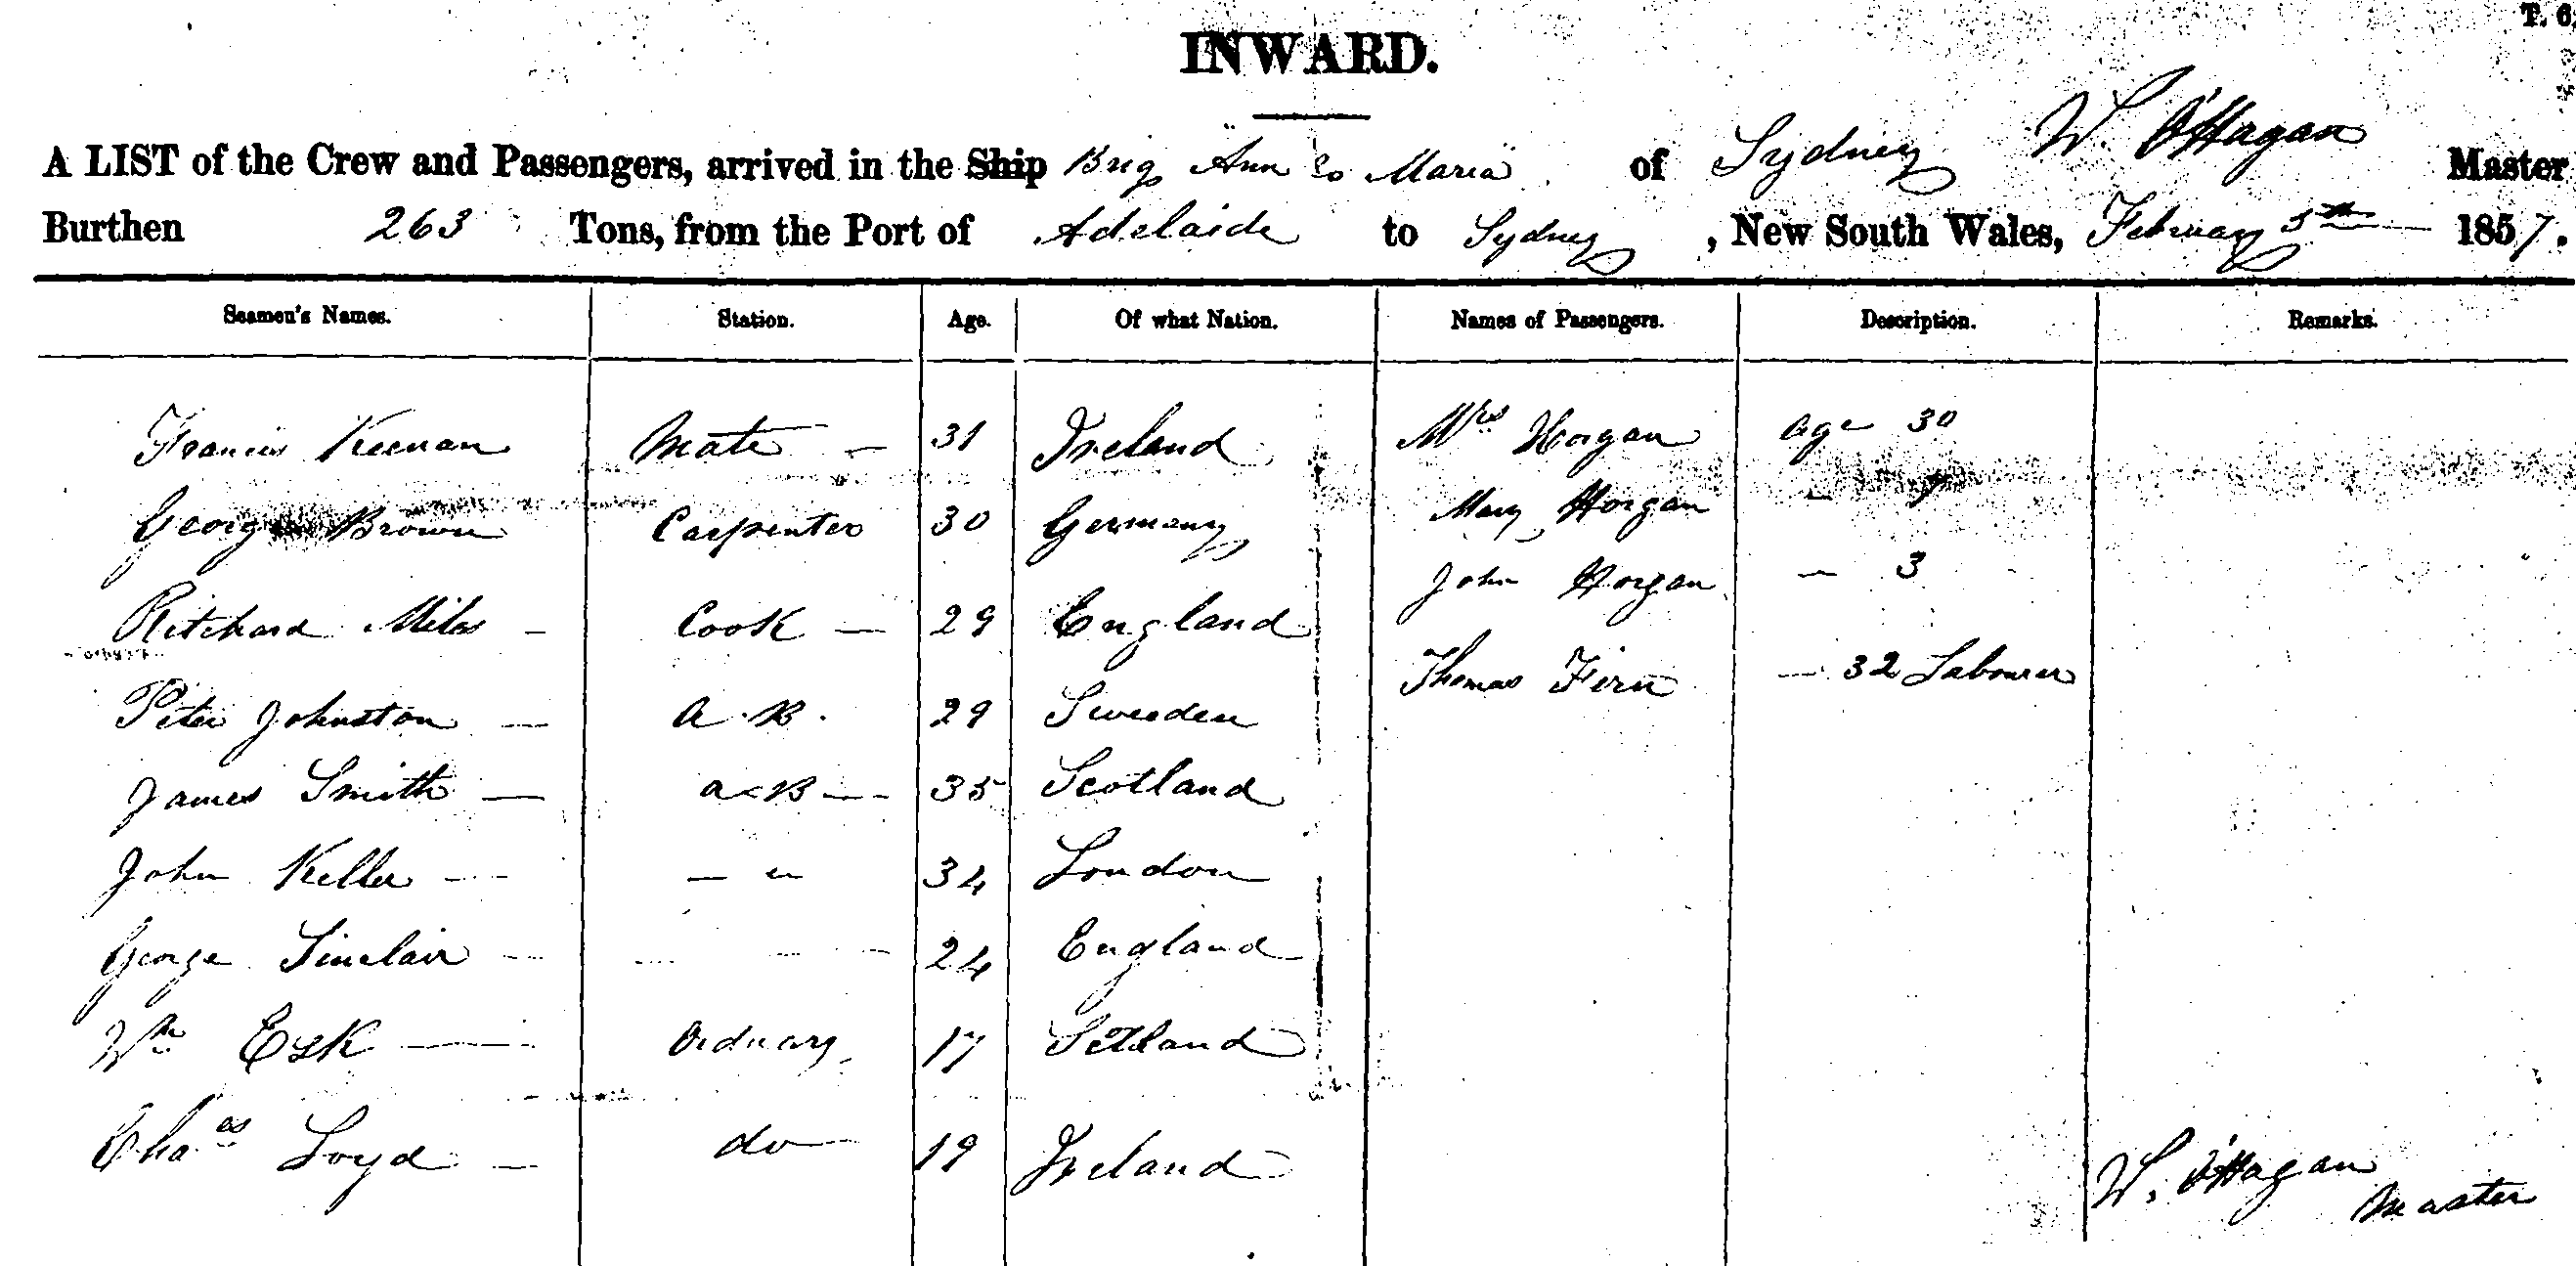 T. 6.
INWARD.
A LIST of the Crew and Passengers, arrived in the Ship Brig "Ann & Maria" of Sydney W. O'Hagan Master
Burthen 263 Tons, from the Port of Adelaide to Sydney, New South Wales, February 5th 1857.
Seamen's Names. Station. Age. Of what Nation. Names of Passengers. Description. Remarks.
Francis Keenan Mate — 31 Ireland Mrs Horgan Age 30
George Brown Carpenter 30 Germany Mary Horgan —
Ritchard Miles — Cook — 29 England John Horgan — 3
Peter Johnston — A.B. 29 Sweeden Thomas Firn — 32 Labourer
James Smith — A B — 35 Scotland
John Keller — — " 34 London
George Sinclair — — — — 24 England
Wm Esk — Ordnary 17 Setland
Chas Loyd — do — 19 Ireland
W. O'Hagan
Master